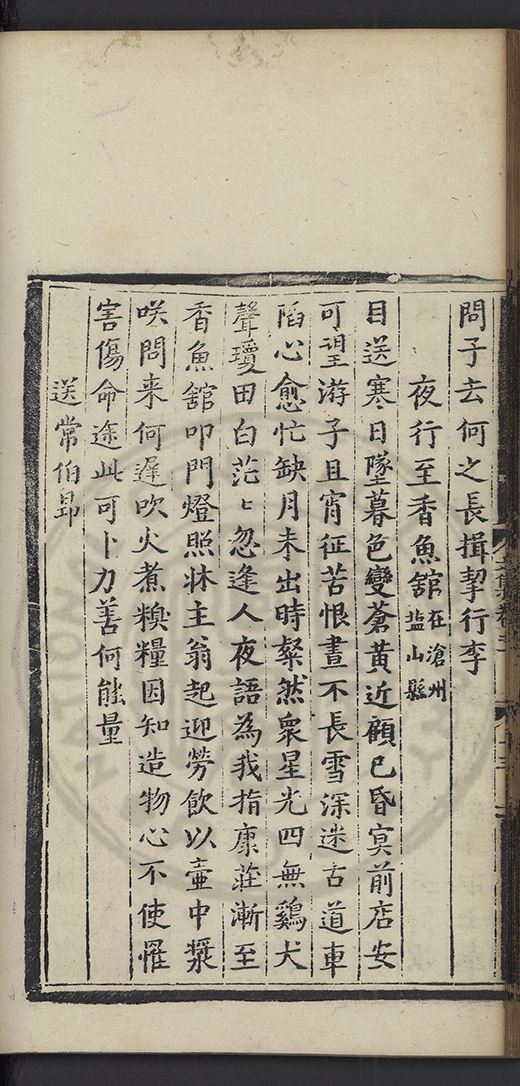 問子去何之長揖挈行李
夜行至香魚舘在滄州鹽山縣
目送寒日墜暮色變蒼黃近顧已昏㝠前店安
可望游子且宵征苦恨晝不長雪深迷古道車
陷心愈忙缺月未出時粲然衆星光四無鷄犬
聲瓊田白茫〻忽逢人夜語為我指康莊漸至
香魚舘叩門燈照牀主翁起迎勞飲以壷中漿
咲問来何遲吹火煮糗糧因知造物心不使罹
害傷命途此可卜力善何能量
送常伯昻